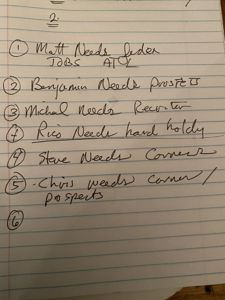 2.
① Matt Needs
JOBS ATL
② Benjamin Needs
③ Michael Needs Recruiter
⑦ Rico Needs hand holdy
④ Steve Needs Corners
⑤ - Chris needs corner /
prospects
⑥